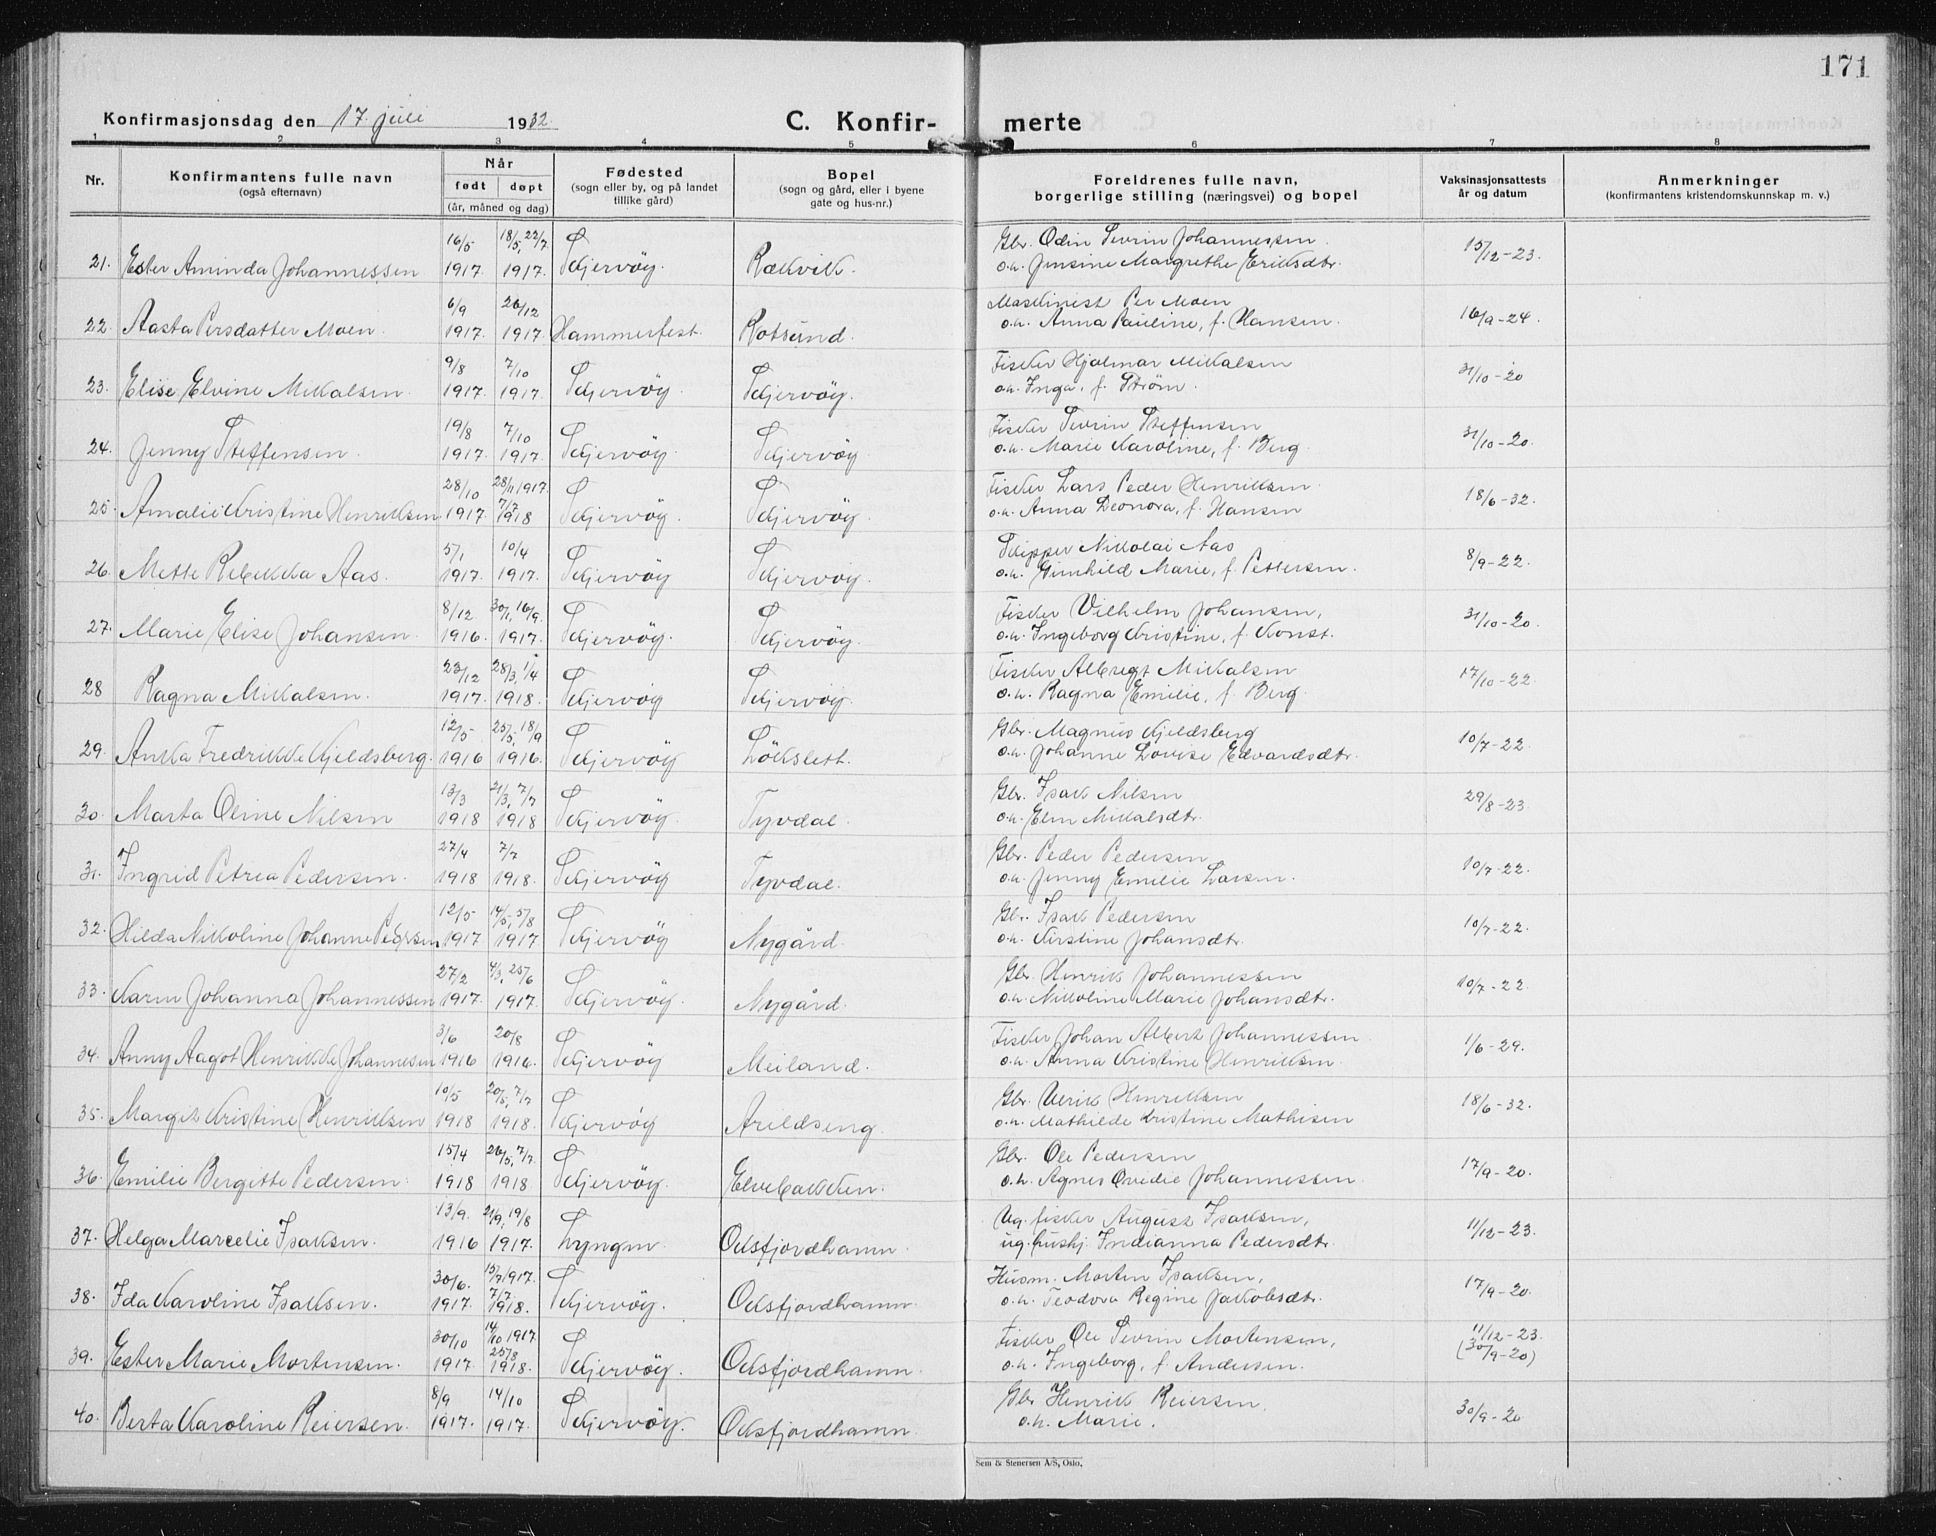 171
Konfirmasjonsdag den 17. juli 1932
C. Konfir- merte
1 2 3 4 5 6 7 8
Nr.
Konfirmantens fulle navn
(også efternavn)
Når
født døpt
(år, måned og dag)
Fødested
(sogn eller by, og på landet
tillike gård)
Bopel
(sogn og gård, eller i byene
gate og hus-nr.)
Foreldrenes fulle navn,
borgerlige stilling (næringsvei) og bopel
Vaksinasjonsattests
år og datum
Anmerkninger
(konfirmantens kristendomskunnskap m. v.)
16/5 18/5, 22/7 Gbr. Odin Sevrin Johannessen 15/12-23.
21. Ester Aminda Johannessen 1917. 1917. Skjervöy. Rækvik. o.h. Jensine Margrethe Eriksdtr.
6/9 26/12 Maskinist Per Moen 16/9-24.
22. Aasta Persdatter Moen. 1917. 1917. Hammerfest. Rotsund. o.h. Anna Pauline, f. Hansen.
9/8 7/10 Fisker Hjalmar Mikalsen 31/10-20
23. Elise Elvine Mikalsen. 1917. 1917. Skjervöy. Skjervöy. o.h. Inga, f. Strøm.
19/8 7/10 Fisker Sevrin Steffensen 31/10-20.
24. Jenny Steffensen. 1917. 1917. Skjervöy. Skjervöy. o.h. Marie Karoline, f. Berg.
28/10 28/11 1917. Fisker Lars Peder Henriksen. 18/6-32.
25. Amalie Kristine Henriksen 1917. 7/7 1918 Skjervöy. Skjervöy. o.h. Anna Leonora, f. Hansen
5/1 10/4 Skipper Nikolai Aas 8/9-22.
26. Mette Rebekka Aas. 1917. 1917. Skjervöy Skjervöy. o.h. Gunhild Marie, f. Pettersen.
8/12 30/1, 16/9. Fisker Vilhelm Johansen, 31/10-20.
27. Marie Elise Johansen. 1916. 1917. Skjervöy. Skjervöy. o.h. Ingeborg Kristine, f. Konst.
23/12 28/3, 1/4 Fisker Albregt Mikalsen 17/10-22.
28 Ragna Mikalsen. 1917. 1918. Skjervöy Skjervöy. o.h. Ragna Emilie, f. Berg.
12/5 25/5, 18/9 Gbr. Magnus Kjeldsberg 10/7-22.
29. Anka Fredrikke Kjeldsberg. 1916 1916. Skjervöy Lökslett. o.h. Johanne Lovise Edvardsdtr.
13/3 21/3, 7/7 Gbr. Isak Nilsen 29/8-23.
30. Marta Oline Nilsen 1918 1918 Skjervöy. Tyvdal. o.h. Elen Mikalsdtr.
27/4 7/7 Gbr. Peder Pedersen 10/7-22.
31. Ingrid Petrea Pedersen. 1918 1918. Skjervöy Tyvdal. o.h. Jenny Emilie Larsen.
12/5 14/5, 5/8 Gbr. Isak Pedersen 10/7-22.
32. Hilda Nikoline Johanne Pedersen 1917 1917. Skjervöy Nygård. o.h. Kirstine Johansdtr.
27/2 4/3, 25/6 Gbr. Henrik Johannessen 10/7-22.
33. Karen Johanna Johannessen 1917. 1917. Skjervöy. Nygård. o.h. Nikoline Marie Johansdtr.
3/6 20/8 Fisker Johan Albert Johannessen 1/6-29.
34. Anny Aagot Henrikke Johannesen 1916 1916. Skjervöy Meiland. o.h. Anna Kristine Henriksen.
10/5 20/5, 7/7 Gbr. Ulrik Henriksen 18/6-32.
35. Margit Kristine Henriksen 1918 1918. Skjervöy Arildseng. o.h. Mathilde Kristine Mathisen
15/4 26/5, 7/7. Gbr. Ole Pedersen 17/9-20.
36. Emilie Bergitte Pedersen. 1918 1918. Skjervöy. Elvebakken. o.h. Agnes Ovedie Johannessen.
13/9. 21/9, 19/8 Ug. fisker August Isaksen, 11/12-23.
37. Helga Marcelie Isaksen. 1916 1917. Lyngen. Oksfjordhamn. ug. hushj. Indianna Pedersdtr.
30/6. 15/7 1917. Husm. Morten Isaksen, 17/9-20.
38. Ida Karoline Isaksen. 1917. 7/7. 1918. Skjervöy. Oksfjordhamn. o.h. Teodora Regine Jakobsdtr.
30/10 14/10 1917. Fisker Ole Sevrin Mortensen, 11/12-23.
39. Ester Marie Mortensen. 1917 25/8 1918. Skjervöy. Oksfjordhamn. o.h. Ingeborg, f. Andersen. (30/9-20)
8/9 14/10 Gbr Henrik Reiersen. 30/9-20
40. Berta Karoline Reiersen. 1917. 1917. Skjervöy. Oksfjordhamn. o.h. Marie.
Sem & Stenersen A/S, Oslo.